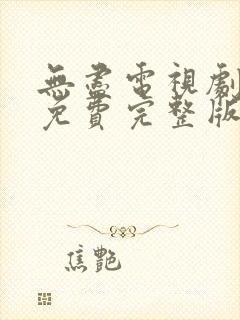 無盡電視劇
免費完整版
焦艷